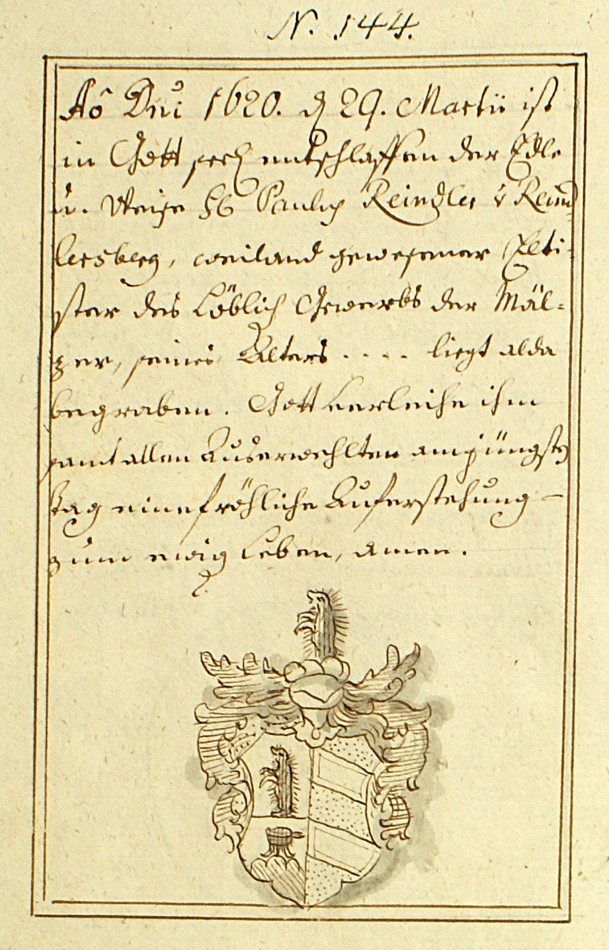 N. 144.
Aō Dni 1620. d 29. Martii ist
in Gott seel entschlaffen der Edle
u. Weise H Paulus Reindler v Reind
lersberg, weiland gewesener Elti-
ster des Löblich Gewerbs der Mäl-
zer, seines Alters . . . . liegt alda
begraben. Gott verleihe ihm
samt allen Auserwehlten am jüngsten
tag eine fröhliche Auferstehung –
zum ewig Leben, amen.